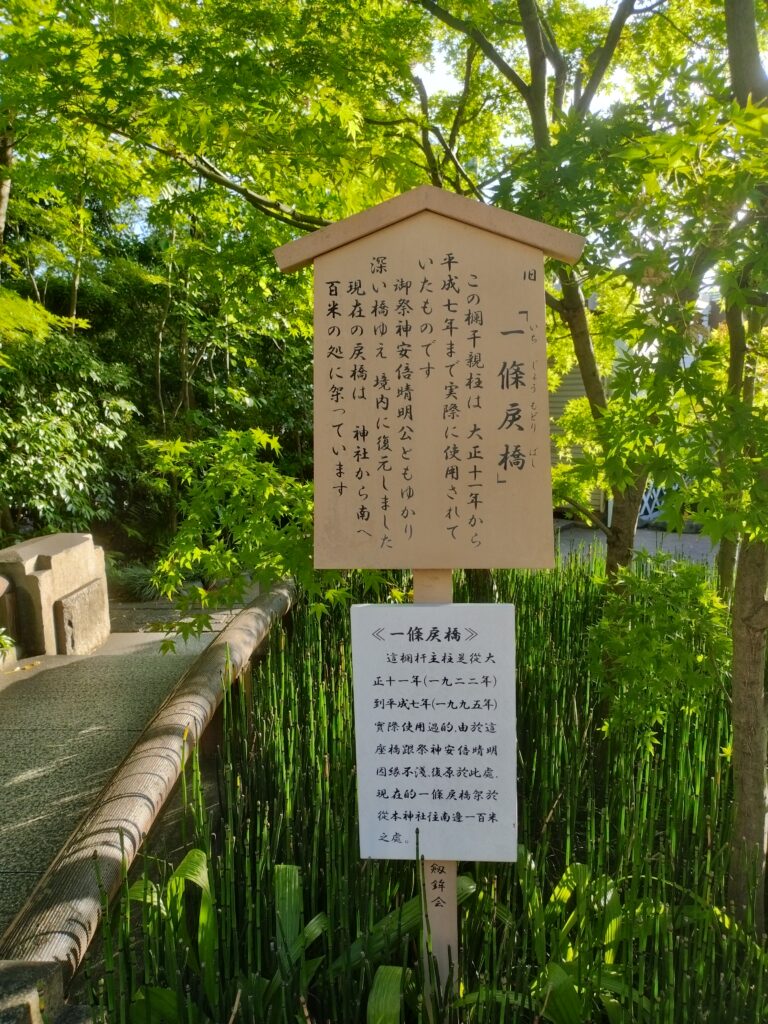 旧「一條戻橋」
いち じょう もどり ばし
この欄干親柱は 大正十一年から
平成七年まで実際に使用されて
いたものです
御祭神安倍晴明公ともゆかり
深い橋ゆえ 境内に復元しました
現在の戻橋は 神社から南へ
百米の処に架っています
≪一條戻橋≫
這欄杆主柱是從大
正十一年(一九二二年)
到平成七年(一九九五年)
實際使用過的,由於這
座橋跟祭神安倍晴明
因緣不淺,復原於此處,
現在的一條戻橋架於
從本神社往南邊一百米
之處。
剱鉾会